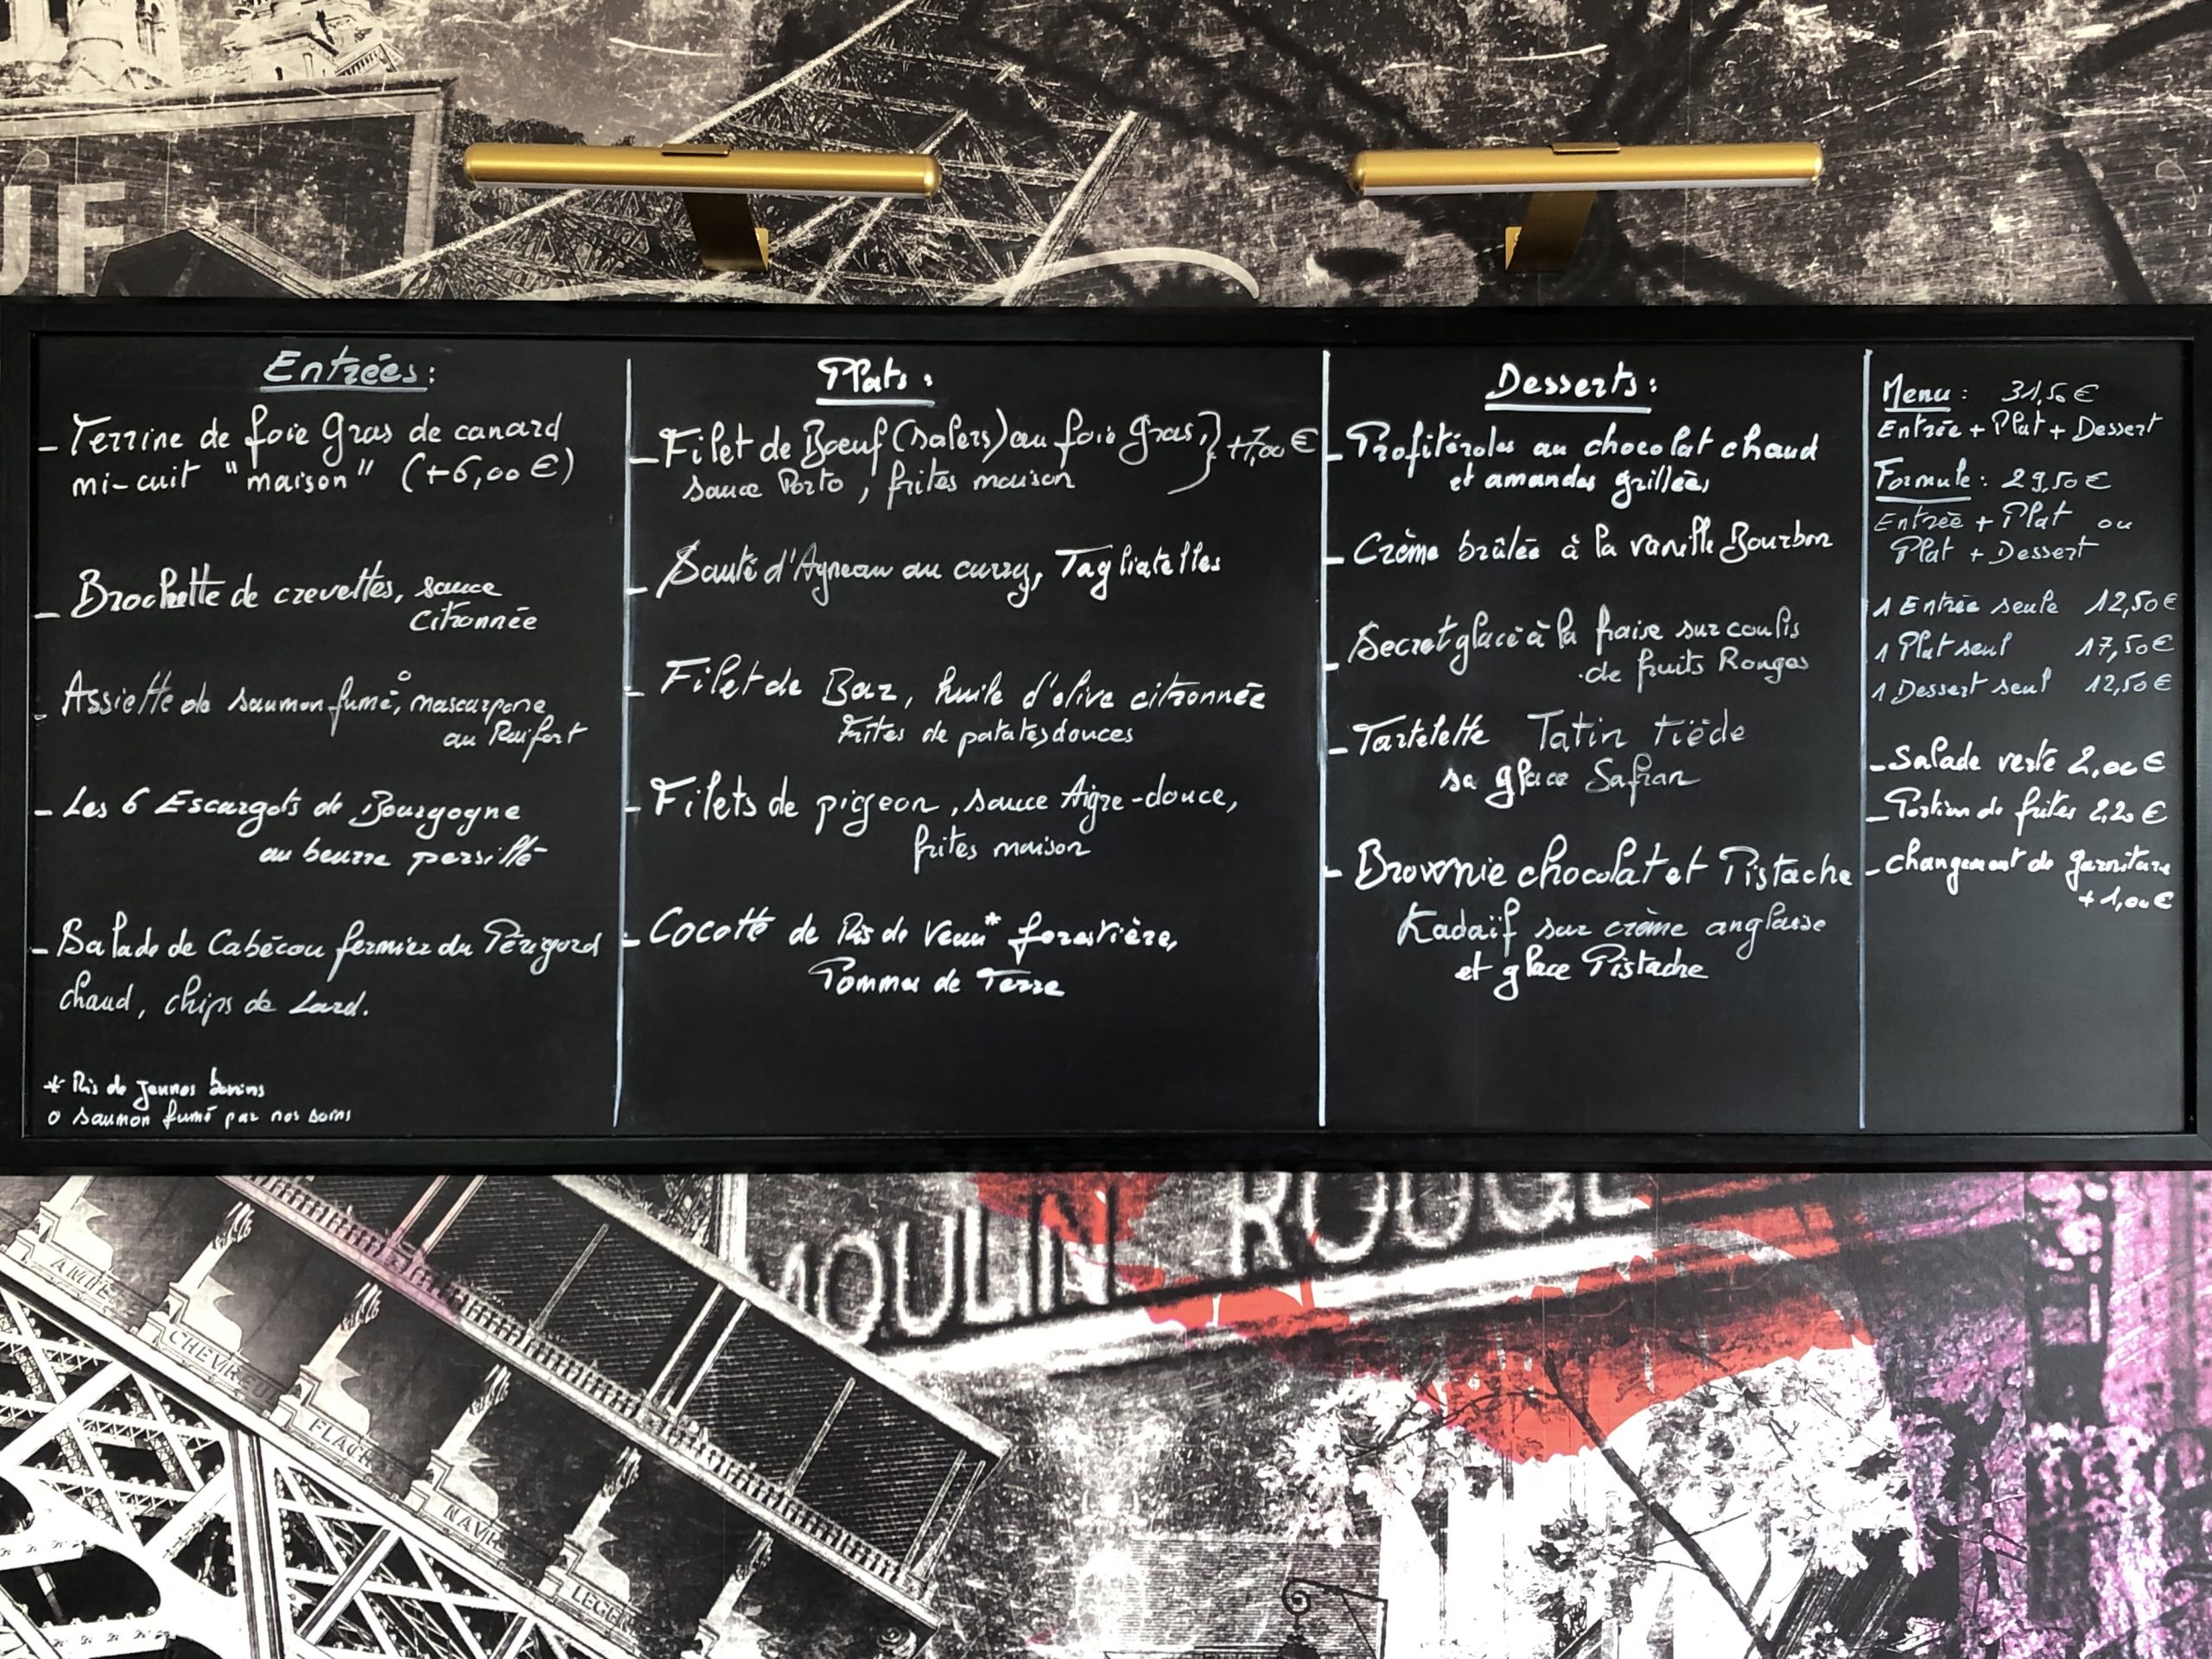 UF
Entrées:
- Terrine de foie gras de canard
mi-cuit "maison" (+6,00€)
- Brochette de crevettes, sauce
citronnée
- Assiette de saumon fumé°, mascarpone
au Raifort
- Les 6 Escargots de Bourgogne
au beurre persillé
- Salade de Cabécou fermier du Périgord
chaud, chips de Lard.
* Ris de jeunes bovins
o saumon fumé par nos soins
Plats:
- Filet de Boeuf (Salers) au foie gras, } +7,00€
sauce Porto, frites maison
- Sauté d'Agneau au curry, Tagliatelles
- Filet de Bar, huile d'olive citronnée
Frites de patates douces
- Filets de pigeon, sauce Aigre-douce,
frites maison
- Cocotte de Ris de Veau* forestière,
Pommes de Terre
Desserts:
- Profiteroles au chocolat chaud
et amandes grillées
- Crème brûlée à la vanille Bourbon
- Secret glacé à la fraise sur coulis
de fruits Rouges
- Tartelette Tatin tiède
sa glace Safran
- Brownie chocolat et Pistache
Kadaïf sur crème anglaise
et glace Pistache
Menu: 31,50€
Entrée + Plat + Dessert
Formule: 29,50€
Entrée + Plat ou
Plat + Dessert
1 Entrée seule 12,50€
1 Plat seul 17,50€
1 Dessert seul 12,50€
- Salade verte 2,00€
- Portion de frites 2,20€
- Changement de garniture
+1,00€
MOULIN ROUGE
CHEVREUL
FLACH
NAVIE
LEGEN